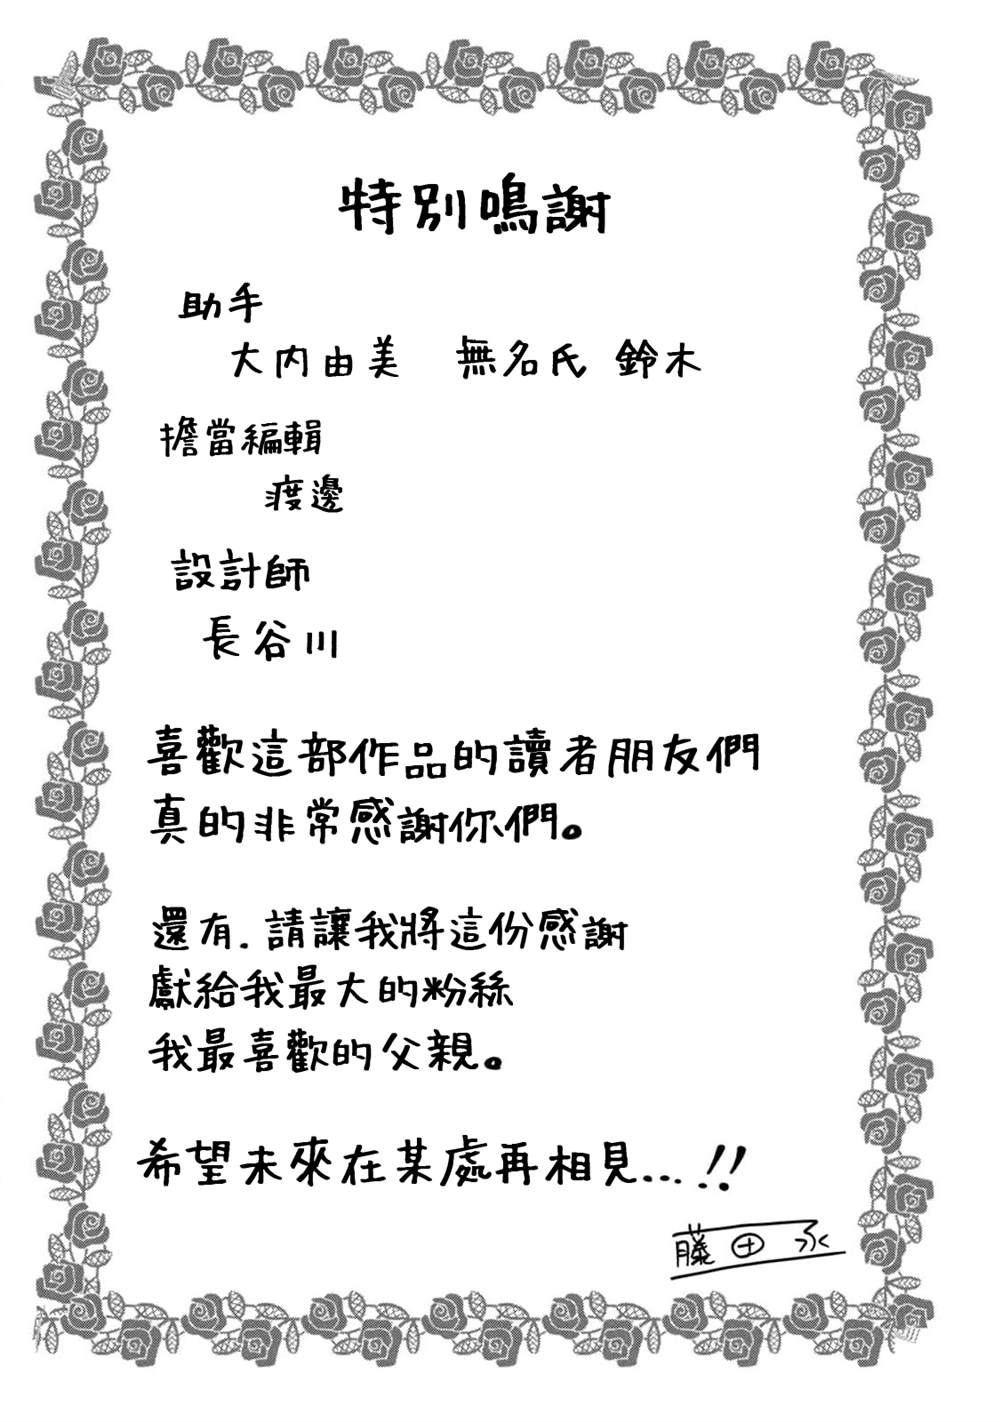 特別鳴謝
助手
大内由美　無名氏 鈴木
擔當編輯
渡邊
設計師
長谷川
喜歡這部作品的讀者朋友們
真的非常感謝你們。
還有.請讓我將這份感謝
獻給我最大的粉絲
我最喜歡的父親。
希望未來在某處再相見...!!
藤田 丞